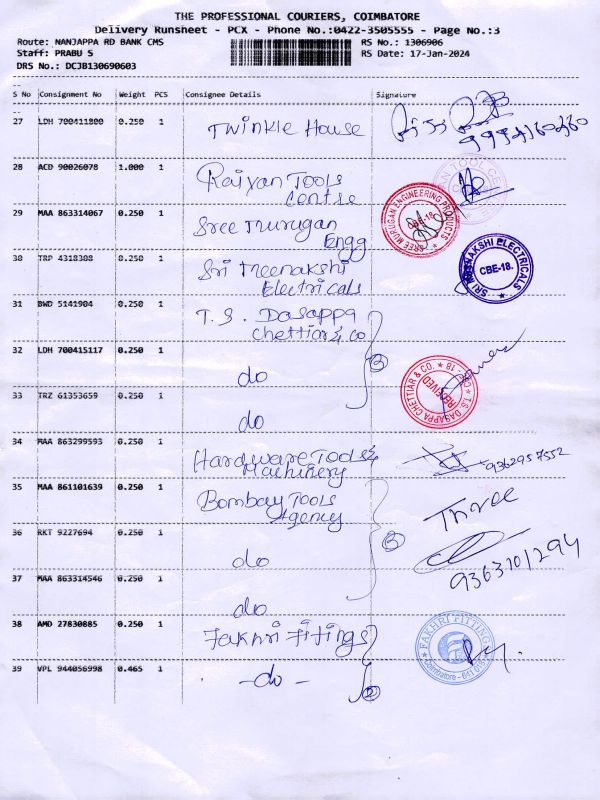 THE PROFESSIONAL COURIERS, COIMBATORE
Delivery Runsheet - PCX - Phone No.:0422-3505555 - Page No.:3
Route: NANJAPPA RD BANK CMS RS No.: 1306906
Staff: PRABU S RS Date: 17-Jan-2024
DRS No.: DCJB130690603
S No Consignment No Weight PCS Consignee Details Signature
27 LDH 700411800 0.250 1 Twinkle House
28 ACD 90026078 1.000 1 Raiyan Tools
Centre
29 MAA 863314067 0.250 1 Sree Murugan
Engg
SREE MURUGAN ENGINEERING PRODUCTS
CBE-18.
30 TRP 4318308 0.250 1 Sri Meenakshi
Electricals
SRI MEENAKSHI ELECTRICALS
CBE-18.
31 BWD 5141904 0.250 1 T. S. Dasappa
Chettiar & Co
32 LDH 700415117 0.250 1 do
3
T.S. DASAPPA CHETTIAR & CO.
RECEIVED
33 TRZ 61353659 0.250 1 do
34 MAA 863299593 0.250 1 Hardware Tools &
Machinery
9362957552
35 MAA 861101639 0.250 1 Bombay Tools
Agency
Three
36 RKT 9227694 0.250 1 do
3
9363101294
37 MAA 863314546 0.250 1 do
38 AMD 27830885 0.250 1 Fakhri Fitings
FAKHRI FITTING
Coimbatore - 641 018
39 VPL 944056998 0.465 1 - do -
2